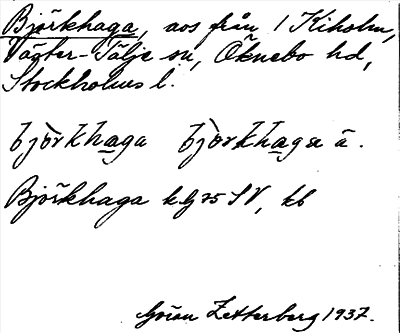 Björkhaga, avs från 1 Kiholm,
Väster-Tälje sn, Öknebo hd,
Stockholms l.
bjòrkhaga bjòrkhagse ä.
Björkhaga kbg 75 SV, kb
Göran Zetterberg 1937.